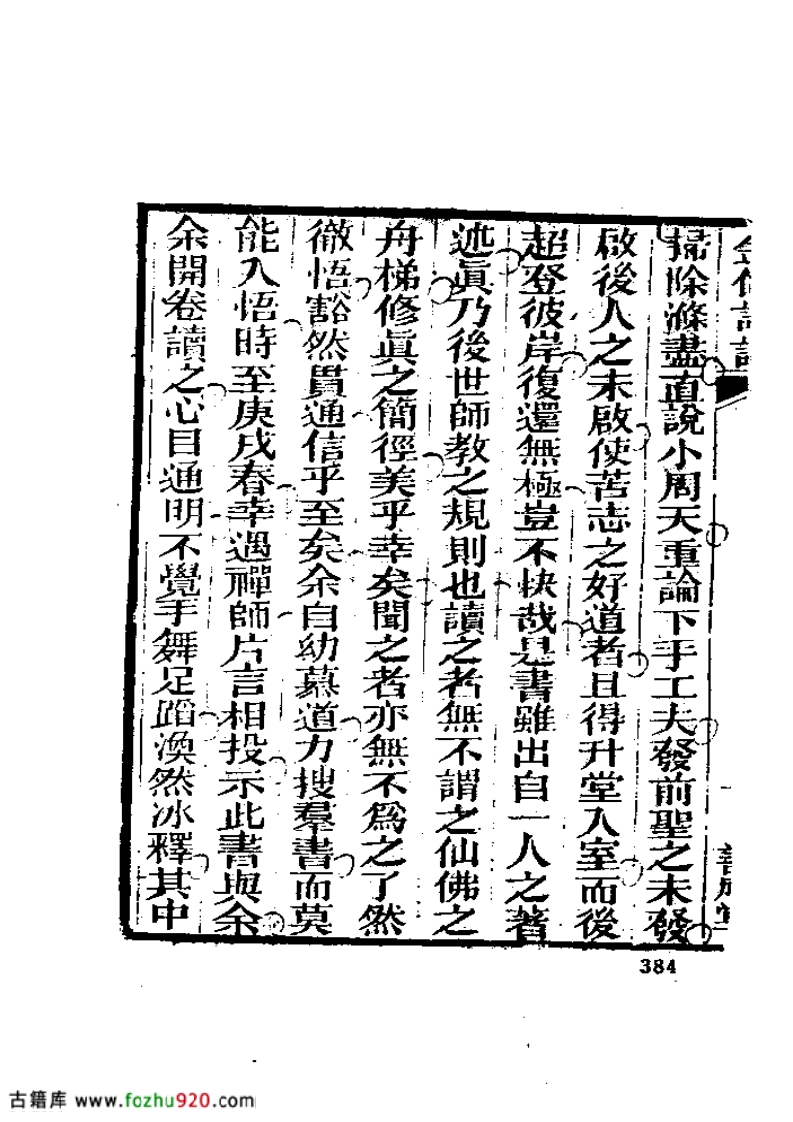 掃除滌盡直說小周天重論下手工夫發前聖之未發
啟後人之未啟使苦志之好道者且得升堂入室而後
超登彼岸復還無極豈不快哉是書雖出自一人之著
述眞乃後世師教之規則也讀之者無不謂之仙佛之
舟梯修眞之簡徑美乎幸矣聞之者亦無不爲之了然
徹悟豁然貫通信乎至矣余自幼慕道力搜羣書而莫
能入悟時至庚戌春幸遇禪師片言相投示此書與余
余開卷讀之心目通明不覺手舞足蹈渙然冰釋其中
384
古籍库 www.fozhu920.com